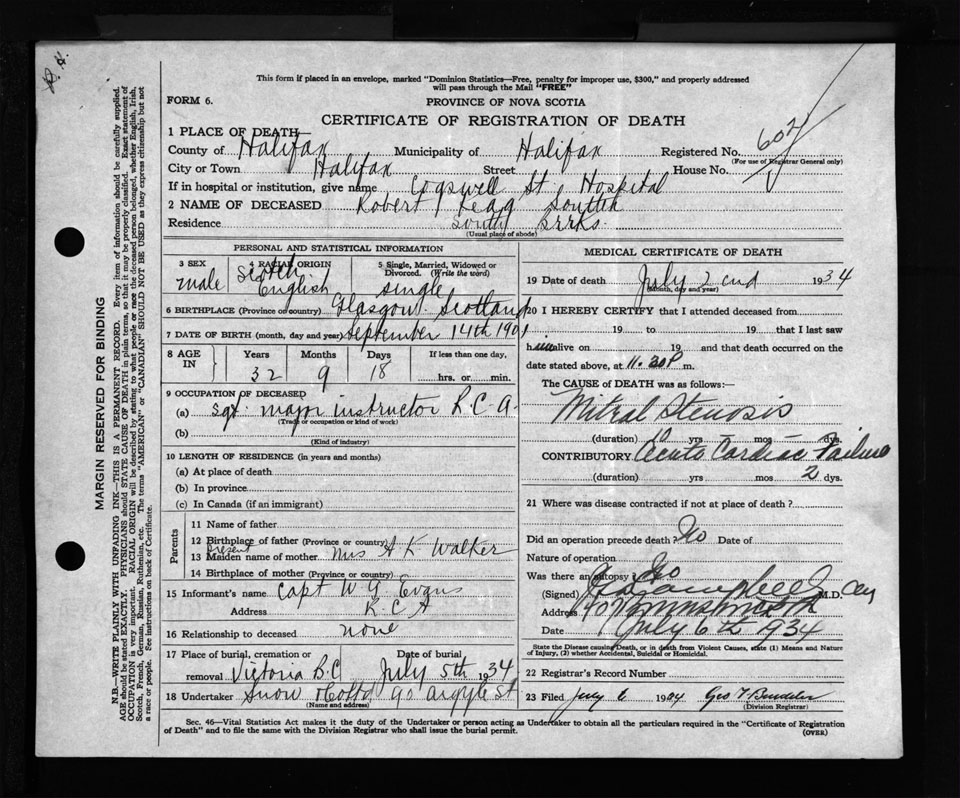 This form if placed in an envelope, marked "Dominion Statistics—Free, penalty for improper use, $300," and properly addressed
will pass through the Mail "FREE"
FORM 6.
PROVINCE OF NOVA SCOTIA
CERTIFICATE OF REGISTRATION OF DEATH
1 PLACE OF DEATH—
County of Halifax Municipality of Halifax Registered No. 607
(For use of Registrar General only)
City or Town Halifax Street House No.
If in hospital or institution, give name Cogswell St. Hospital
2 NAME OF DECEASED Robert Legg
Residence South Brks.
(Usual place of abode)
PERSONAL AND STATISTICAL INFORMATION
3 SEX
male
4 RACIAL ORIGIN
Scotch
English
5 Single, Married, Widowed or
Divorced. (Write the word)
single
6 BIRTHPLACE (Province or country) Glasgow Scotland
7 DATE OF BIRTH (month, day and year) September 14th 1901
8 AGE IN
Years Months Days If less than one day,
32 9 18 hrs. or min.
9 OCCUPATION OF DECEASED
(a) Sgt. major instructor R.C.A.
(Trade or occupation or kind of work)
(b)
(Kind of industry)
10 LENGTH OF RESIDENCE (in years and months)
(a) At place of death
(b) In province
(c) In Canada (if an immigrant)
Parents
11 Name of father
12 Birthplace of father (Province or country)
present
13 Maiden name of mother Mrs A K Walker
14 Birthplace of mother (Province or country)
15 Informant's name Capt W G Evans
Address R.C.A
16 Relationship to deceased none
17 Place of burial, cremation or Date of burial
removal Victoria B.C July 5th 1934
18 Undertaker Snow & Co Ltd 90 Argyle St
(Name and address)
MEDICAL CERTIFICATE OF DEATH
19 Date of death July 2 cnd 1934
(Month, day and year)
20 I HEREBY CERTIFY that I attended deceased from
19 to 19 that I last saw
him alive on 19 and that death occurred on the
date stated above, at 11.30P m.
The CAUSE OF DEATH was as follows:—
Mitral Stenosis
(duration) yrs mos dys.
CONTRIBUTORY Acute Cardiac Failure
(duration) yrs mos 2 dys.
21 Where was disease contracted if not at place of death?
Did an operation precede death? No Date of
Nature of operation
Was there an autopsy? No
(Signed) Campbell M.D.
Address
Date July 6th 1934
State the Disease causing Death, or in death from Violent Causes, state (1) Means and Nature
of Injury, (2) whether Accidental, Suicidal or Homicidal.
22 Registrar's Record Number
23 Filed July 6 1934 Geo
(Division Registrar)
Sec. 46—Vital Statistics Act makes it the duty of the Undertaker or person acting as Undertaker to obtain all the particulars required in the "Certificate of Registration
of Death" and to file the same with the Division Registrar who shall issue the burial permit.
(OVER)
MARGIN RESERVED FOR BINDING
N.B.—WRITE PLAINLY WITH UNFADING INK—THIS IS A PERMANENT RECORD. Every item of information should be carefully supplied.
AGE should be stated EXACTLY. PHYSICIANS should STATE CAUSE OF DEATH in plain terms, so that it may be properly classified. Exact statement of
OCCUPATION is very important. RACIAL ORIGIN will be described by stating to what people or race the deceased person belonged, whether English, Irish,
Scotch, French, German, Russian, Ruthenian, etc. The terms "AMERICAN" or "CANADIAN" SHOULD NOT BE USED as they express citizenship but not
a race or people. See instructions on back of Certificate.